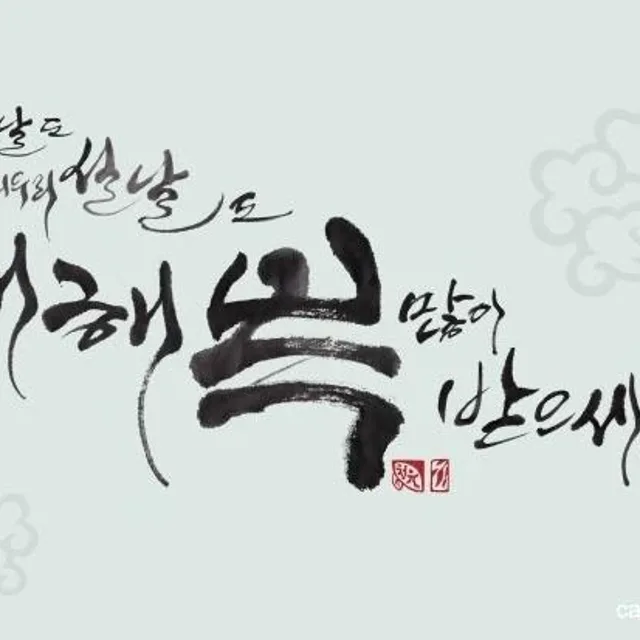 날도
우리 설날도
새해 복 많이
받으세
ca